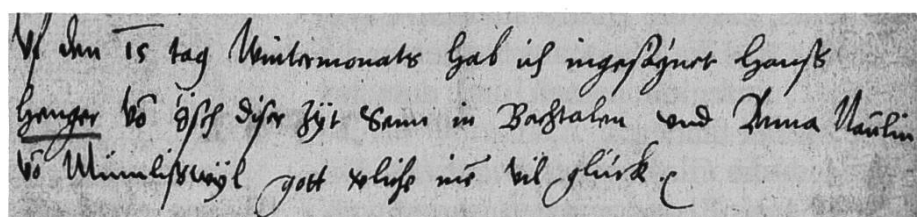 Vf den 15 tag Wintermonats hab ich ingesägnet Hanss
Henger vō ösch diser zÿt Senn in Bachtalen vnd Anna Naülin
vō Mümlisswÿl gott verliche inē vil glück.